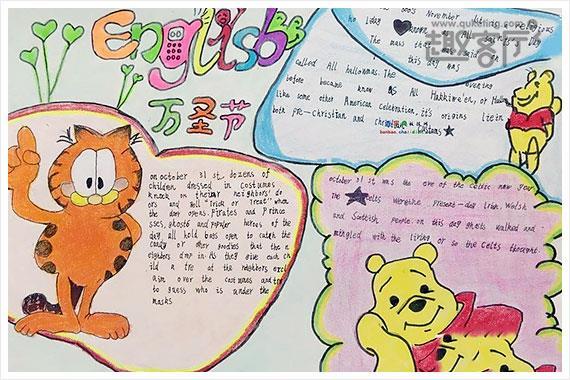 English
万圣节
on october 31 st dozens of
children dressed in costumes
knock on their neighbors' do
ors and yell "Trick or Treat" when
the door opens. Pirates and Prince
sses, ghosts and popular heroes of the
day all hold bags open to catch the
candy or other goodies that the n
eighbors drop in. As they give each chi
ld a tre at the neighbors excl
aim over the costumes and try
to guess who is under the
masks
November
The mass that was said on
this day was
called All hallowmas. The evening
before became know as All Hakkiwe'en, or
like some other American Celebration, it's origins lie in
both pre-Christian and
october 31 st was the eve of the Celtic new year
The Celts were the present-day Irish. Welsh
and Scottish people on this day ghosts walked and
mingled with the living or so the Celts thought.
www.quketing.com
趣客厅